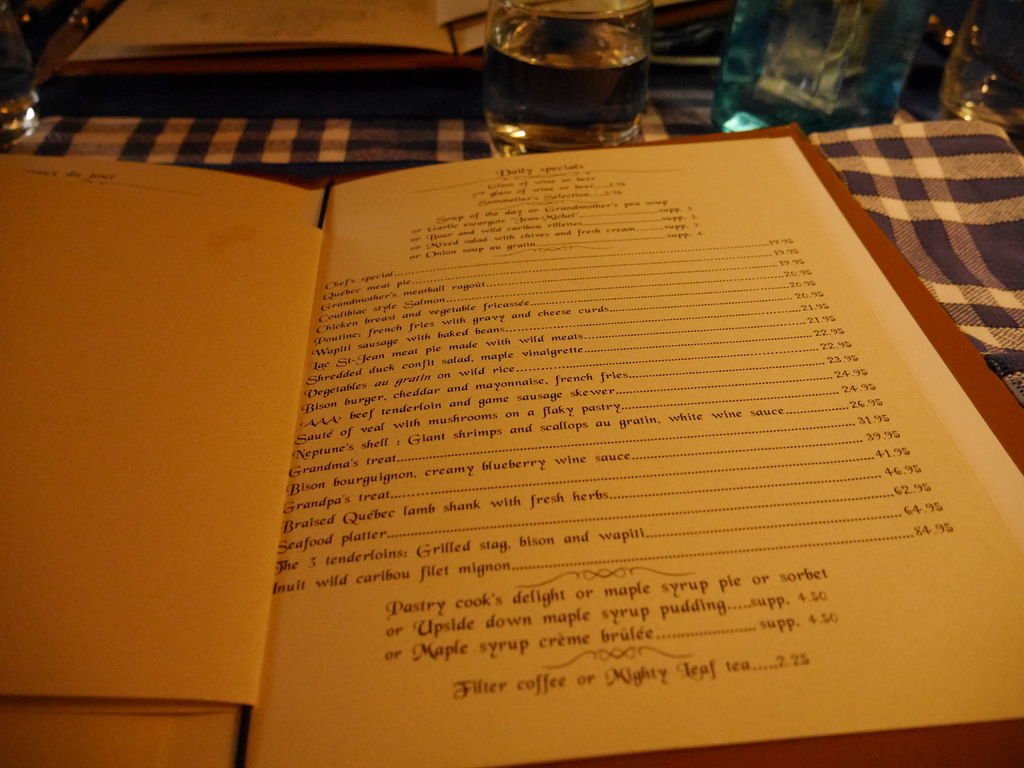 du jour
Daily specials
Glass of wine or beer
glass of wine or beer
Sommelier's Selection
Soup of the day or Grandmother's pea soup
or Garlic escargots "Jean-Michel"..........supp. 2.
or Boar and wild caribou rillettes..........supp. 2.
or Mixed salad with chives and fresh cream..........supp. 2.
or Onion soup au gratin..........supp. 4.
Chef's special..........19.95
Québec meat pie..........19.95
Grandmother's meatball ragoût..........19.95
Coulibiac style Salmon..........20.95
Chicken breast and vegetable fricassée..........20.95
Poutine: french fries with gravy and cheese curds..........20.95
Wapiti sausage with baked beans..........21.95
Lac St-Jean meat pie made with wild meats..........21.95
Shredded duck confit salad, maple vinaigrette..........22.95
Vegetables au gratin on wild rice..........22.95
Bison burger, cheddar and mayonnaise, french fries..........23.95
"AAA" beef tenderloin and game sausage skewer..........24.95
Sauté of veal with mushrooms on a flaky pastry..........24.95
Neptune's shell : Giant shrimps and scallops au gratin, white wine sauce..........26.95
Grandma's treat..........31.95
Bison bourguignon, creamy blueberry wine sauce..........39.95
Grandpa's treat..........41.95
Braised Québec lamb shank with fresh herbs..........46.95
Seafood platter..........62.95
The 3 tenderloins: Grilled stag, bison and wapiti..........64.95
Inuit wild caribou filet mignon..........84.95
Pastry cook's delight or maple syrup pie or sorbet
or Upside down maple syrup pudding.....supp. 4.50
or Maple syrup crème brûlée.......... supp. 4.50
Filter coffee or Mighty Leaf tea.....2.25